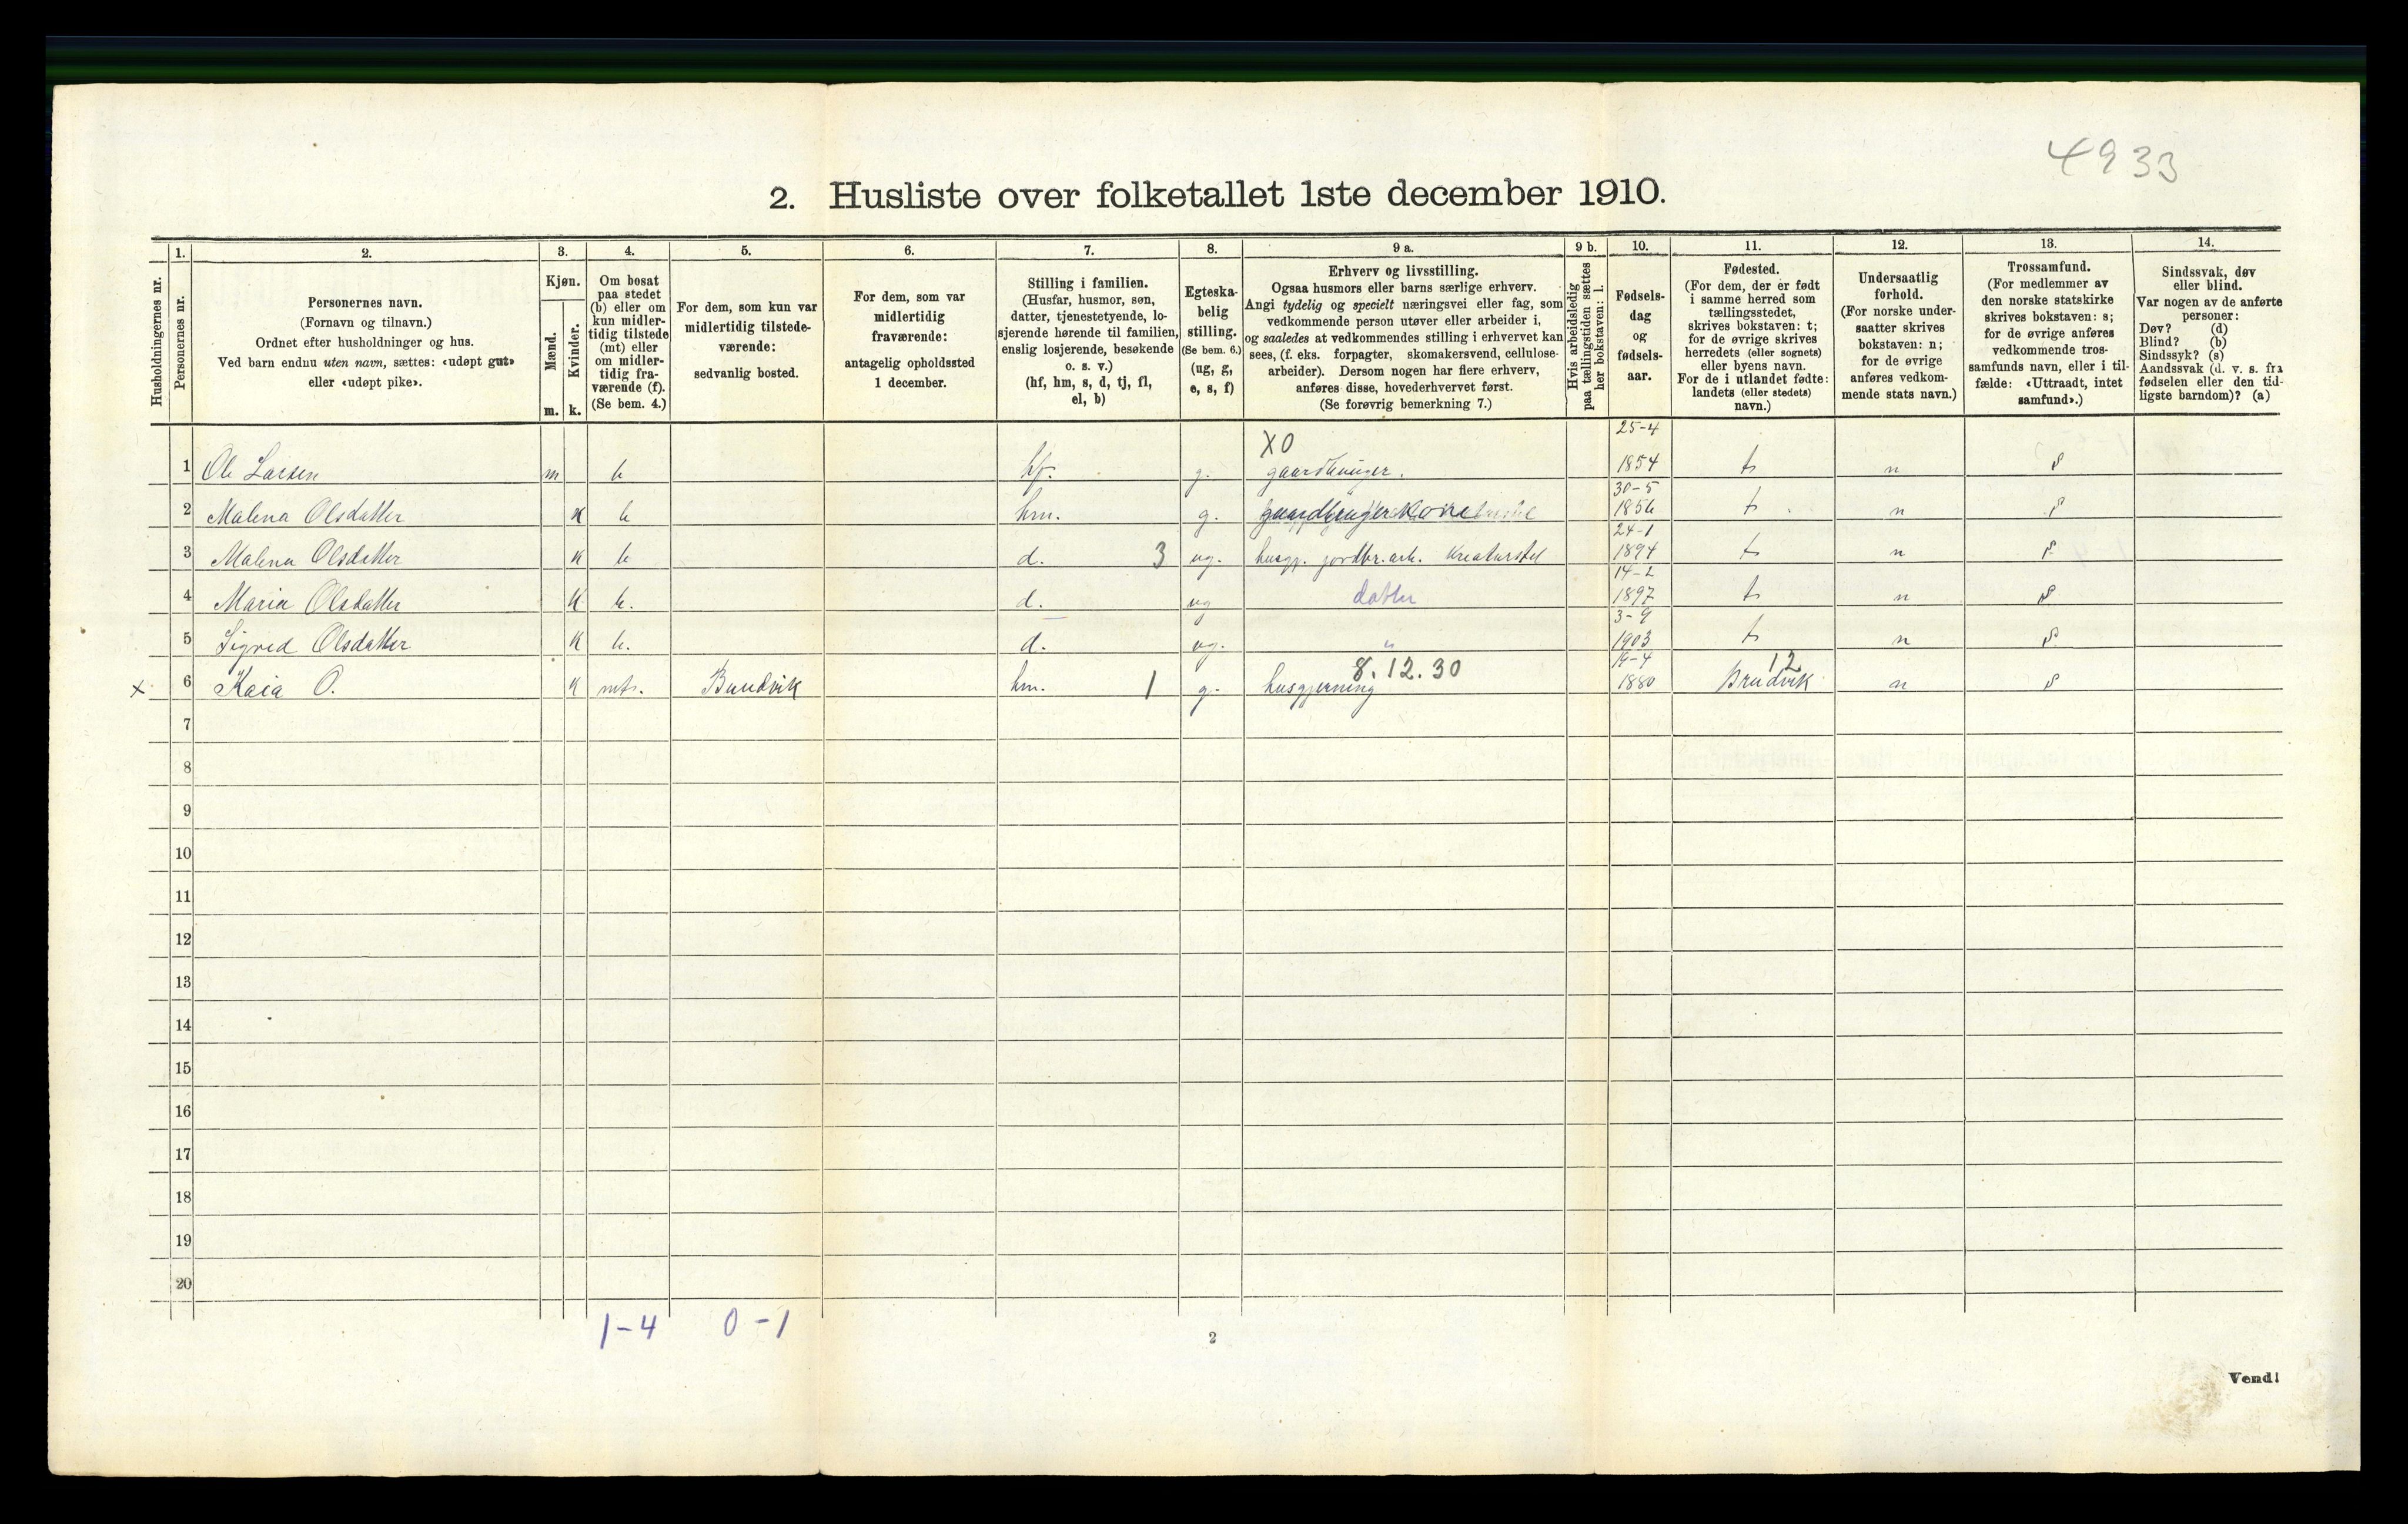 4933
2. Husliste over folketallet 1ste december 1910.
Husholdningernes nr.
1. Personernes nr.
2. Personernes navn.
(Fornavn og tilnavn.)
Ordnet efter husholdninger og hus.
Ved barn endnu uten navn, sættes: «udøpt gut»
eller «udøpt pike».
3. Kjøn.
Mænd. m.
Kvinder. k.
4. Om bosat
paa stedet
(b) eller om
kun midler-
tidig tilstede
(mt) eller
om midler-
tidig fra-
værende (f).
(Se bem. 4.)
5. For dem, som kun var
midlertidig tilstede-
værende:
sedvanlig bosted.
6. For dem, som var
midlertidig
fraværende:
antagelig opholdssted
1 december.
7. Stilling i familien.
(Husfar, husmor, søn,
datter, tjenestetyende, lo-
sjerende hørende til familien,
enslig losjerende, besøkende
o. s. v.)
(hf, hm, s, d, tj, fl,
el, b)
8. Egteska-
belig
stilling.
(Se bem. 6.)
(ug, g,
e, s, f)
9 a. Erhverv og livsstilling.
Ogsaa husmors eller barns særlige erhverv.
Angi tydelig og specielt næringsvei eller fag, som
vedkommende person utøver eller arbeider i,
og saaledes at vedkommendes stilling i erhvervet kan
sees, (f. eks. forpagter, skomakersvend, cellulose-
arbeider). Dersom nogen har flere erhverv,
anføres disse, hovederhvervet først.
(Se forøvrig bemerkning 7.)
9 b. Hvis arbeidsledig
paa tællingstiden sættes
her bokstaven: l.
10. Fødsels-
dag
og
fødsels-
aar.
11. Fødested.
(For dem, der er født
i samme herred som
tællingsstedet,
skrives bokstaven: t;
for de øvrige skrives
herredets (eller sognets)
eller byens navn.
For de i utlandet fødte:
landets (eller stedets)
navn.)
12. Undersaatlig
forhold.
(For norske under-
saatter skrives
bokstaven: n;
for de øvrige
anføres vedkom-
mende stats navn.)
13. Trossamfund.
(For medlemmer av
den norske statskirke
skrives bokstaven: s;
for de øvrige anføres
vedkommende tros-
samfunds navn, eller i til-
fælde: «Uttraadt, intet
samfund».)
14. Sindssvak, døv
eller blind.
Var nogen av de anførte
personer:
Døv? (d)
Blind? (b)
Sindssyk? (s)
Aandssvak (d. v. s. fra
fødselen eller den tid-
ligste barndom)? (a)
X0 25-4
1 Ole Larsen m b hf. g. gaardbruger. 1854 t n s
30-5
2 Malena Olsdatter k b hm. g. gaardbrugerkone 1856 t n s
24-1
3 Malena Olsdatter k b d. 3 ug. husgj. jordbr.arb. Kreaturstel 1894 t n s
14-2
4 Maria Olsdatter k b. d. ug datter 1897 t n s
3-9
5 Sigrid Olsdatter k b. d. ug. " 1903 t n s
8.12.30 19-4 12
x 6 Kaia O. k mt. Brudvik hm. 1 g. husgjerning 1880 Brudvik n s
7
8
9
10
11
12
13
14
15
16
17
18
19
20
1-4 0-1
2
Vend!